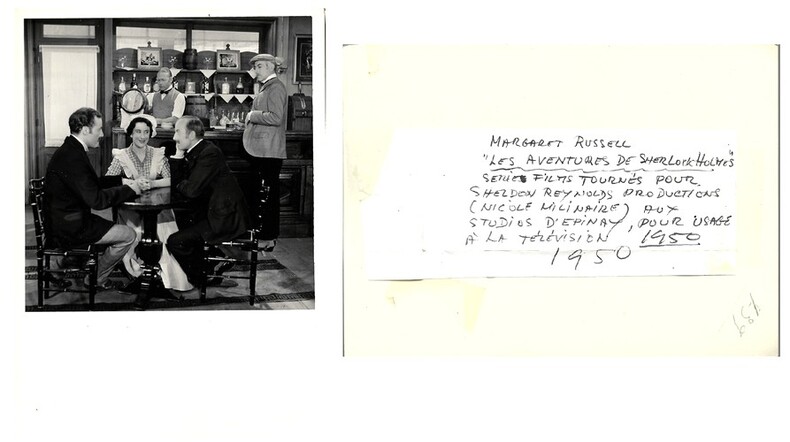 MARGARET RUSSELL
"LES AVENTURES DE SHERLOCK HOLMES"
SERIE FILMS TOURNÉS POUR
SHELDON REYNOLDS PRODUCTIONS
(NICOLE MILINAIRE) AUX
STUDIOS D'EPINAY, POUR USAGE
À LA TÉLÉVISION 1950
1950